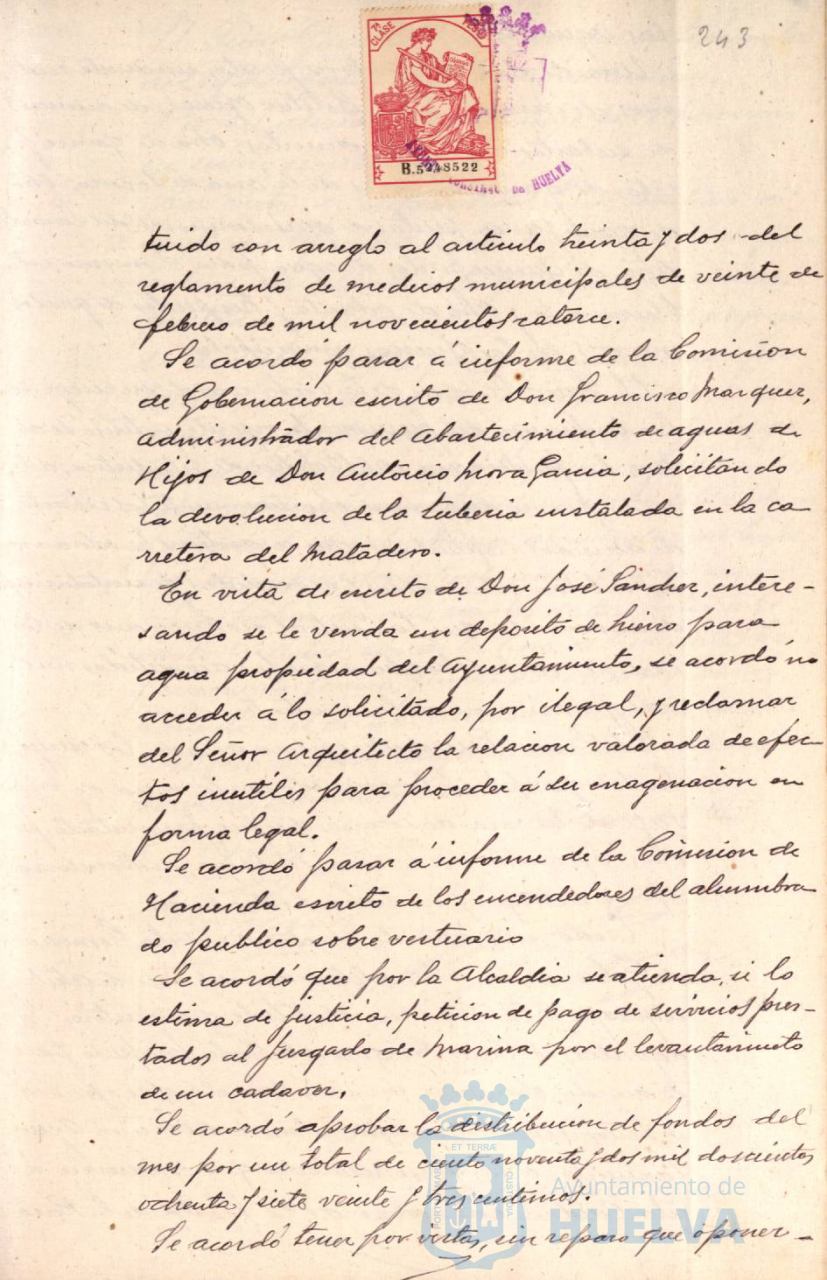 243
7ª CLASE
B.5248522
HUELVA
tuido con arreglo al articulo treinta y dos del
reglamento de medicos municipales de veinte de
febrero de mil novecientos catorce.
Se acordó pasar á informe de la Comision
de Gobernacion escrito de Don Francisco Marquez,
administrador del Abastecimiento de aguas de
Hijos de Don Antonio Mora Garcia, solicitando
la devolucion de la tuberia instalada en la ca
rretera del Matadero.
En vista de escrito de Don José Sanchez, intere-
sando se le venda un deposito de hierro para
agua propiedad del Ayuntamiento, se acordó no
acceder á lo solicitado, por ilegal, y reclamar
del Señor Arquitecto la relacion valorada de efec
tos inutiles para proceder á su enagenacion en
forma legal.
Se acordó pasar á informe de la Comision de
Hacienda escrito de los encendedores del alumbra
do publico sobre vestuario
Se acordó que por la Alcaldia se atienda, si lo
estima de justicia, peticion de pago de servicios pres-
tados al Juzgado de Marina por el levantamiento
de un cadaver.
Se acordó aprobar la distribucion de fondos del
mes por un total de ciento noventa y dos mil doscientos
ochenta y siete veinte y tres centimos.
Se acordó tener por vistas, sin reparo que oponer-
PORTUS MARIS ET TERRÆ CUSTODIA
Ayuntamiento de
HUELVA